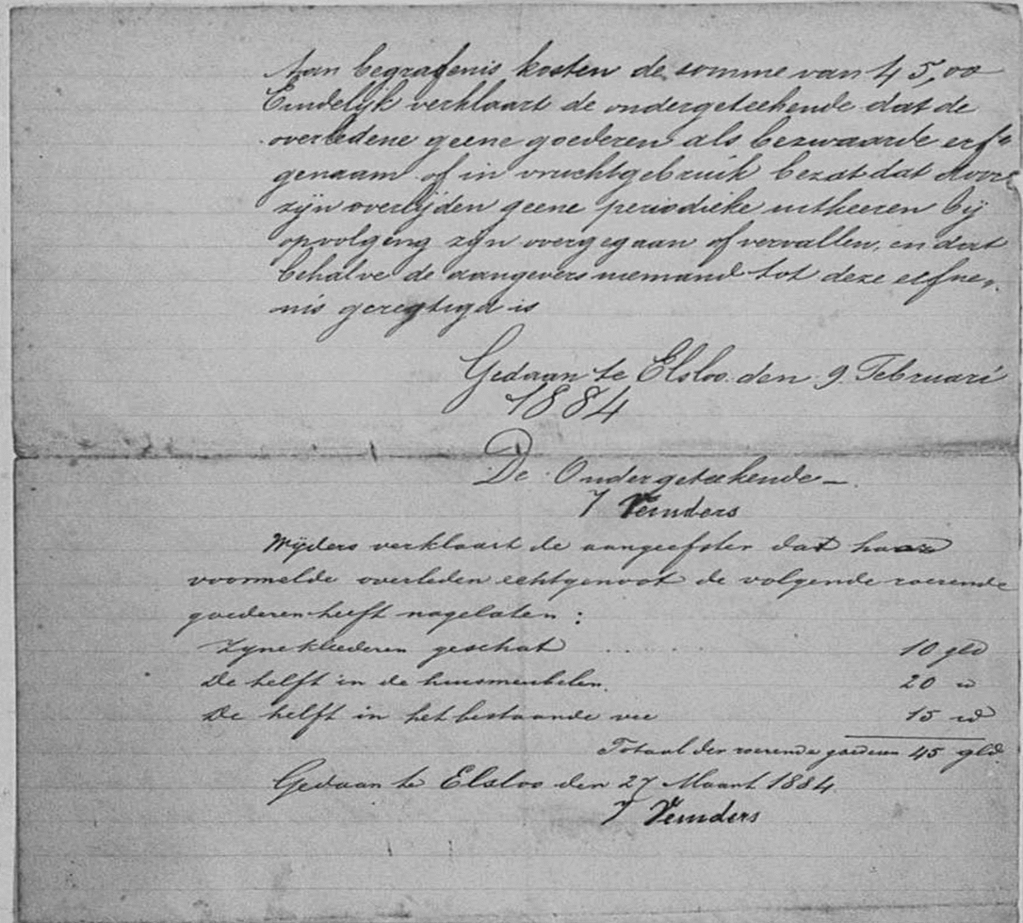 Aan begrafenis kosten de somme van 45,00
Eindelijk verklaart de ondergeteekende dat de
overledene geene goederen als bezwaarde erf=
genaam of in vruchtgebruik bezat dat door
zijn overlijden geene periodieke uitkeeren bij
opvolging zijn overgegaan of vervallen, en dat
behalve de aangevers niemand tot deze erfne-
nis geregtigd is
Gedaan te Elsloo den 9 Februari
1884
De Ondergeteekende
J Veinders
Wijders verklaart de aangeefster dat haar
voormelde overleden echtgenoot de volgende roerende
goederen heeft nagelaten:
Zyne kliederen geschat ..... 10 gld
De helft in de huismeubelen 20 id
De helft in het bestaande vee 15 id
Totaal der roerende goederen 45 gld.
Gedaan te Elsloo den 27 Maart 1884
J Veinders